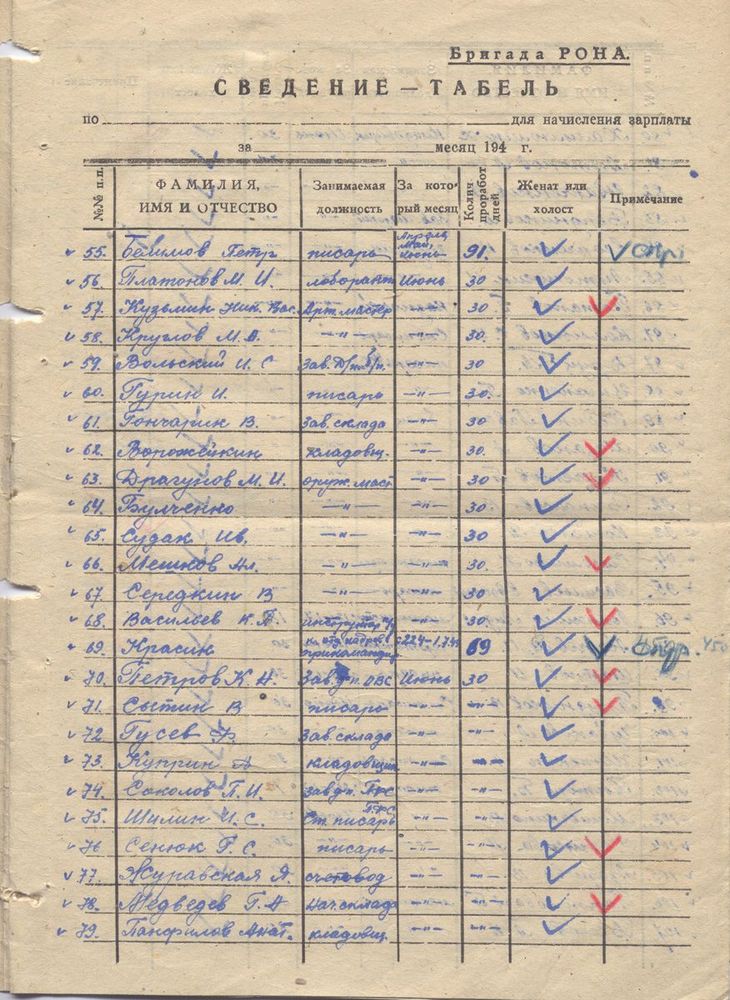 Бригада РОНА.
СВЕДЕНИЕ — ТАБЕЛЬ
по для начисления зарплаты
за месяц 194 г.
№№ п.п. ФАМИЛИЯ, ИМЯ И ОТЧЕСТВО Занимаемая должность За который месяц Колич проработ дней Женат или холост Примечание
55. Петр писарь Апрель, Май, июнь 91.
56. Платонов М. И. лаборант Июнь 30
57. Кузьмин Ник. Вас. Арт. мастер —"— 30
58. Круглов М. В. —"— —"— 30.
59. Вольский И. С Зав. —"— 30
60. Гурин И. писарь —"— 30.
61. Гончарик В. Зав. склада —"— 30
62. Ворожейкин кладовщ. —"— 30.
63. Драгунов М. И. оруж. маст —"— 30
64. Булченко —"— —"— 30
65. Судак Ив. —"— —"— 30
66. Мешков Ал. —"— —"— 30.
67. Середкин В —"— —"— 30
68. Васильев К. П инструктор —"— 30.
69. Красин 69
70. Петров К. А Зав. д п. ОВС Июнь 30
71. Сытин В писарь —"— —"—
72 Гусев Ф. Зав. склада —"— —"—
73. Куприн А кладовщик —"— —"—
74. Соколов П. И. завд п. ПФС —"— —"—
75. Шилин И. С. Ст. писарь ПФС —"— —"—
76 Сенюк Г. С. писарь —"— —"—
77. Журавская Я. счетовод —"— —"—
78. Медведев Г. А Нач. склада —"— —"—
79. Панфилов Анат. кладовщ. —"— —"—